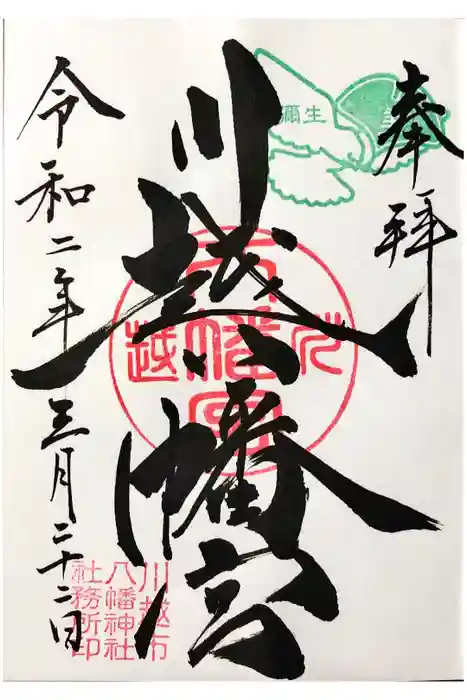 奉拝
彌生
川越八幡宮
川越
八幡宮
令和二年三月二十二日
川越市
八幡神社
社務所印